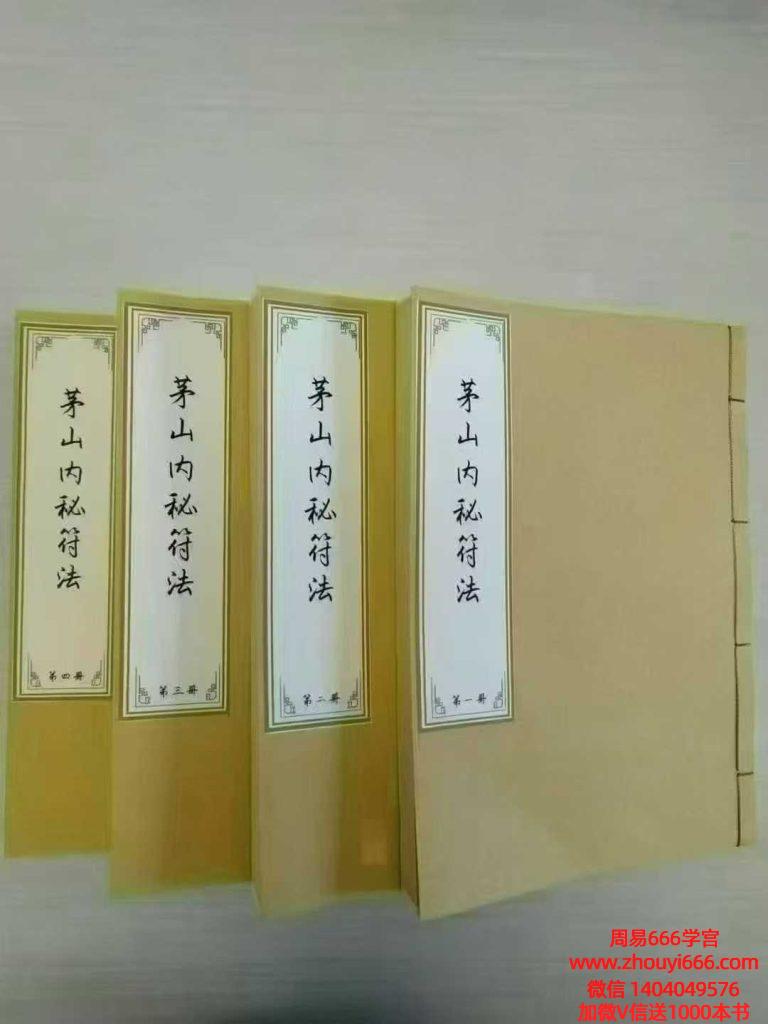 茅山内秘符法
第四册
茅山内秘符法
第三册
茅山内秘符法
第二册
茅山内秘符法
第一册
周易666学宫
www.zhouyi666.com
微信 1404049576
加微V信送1000本书